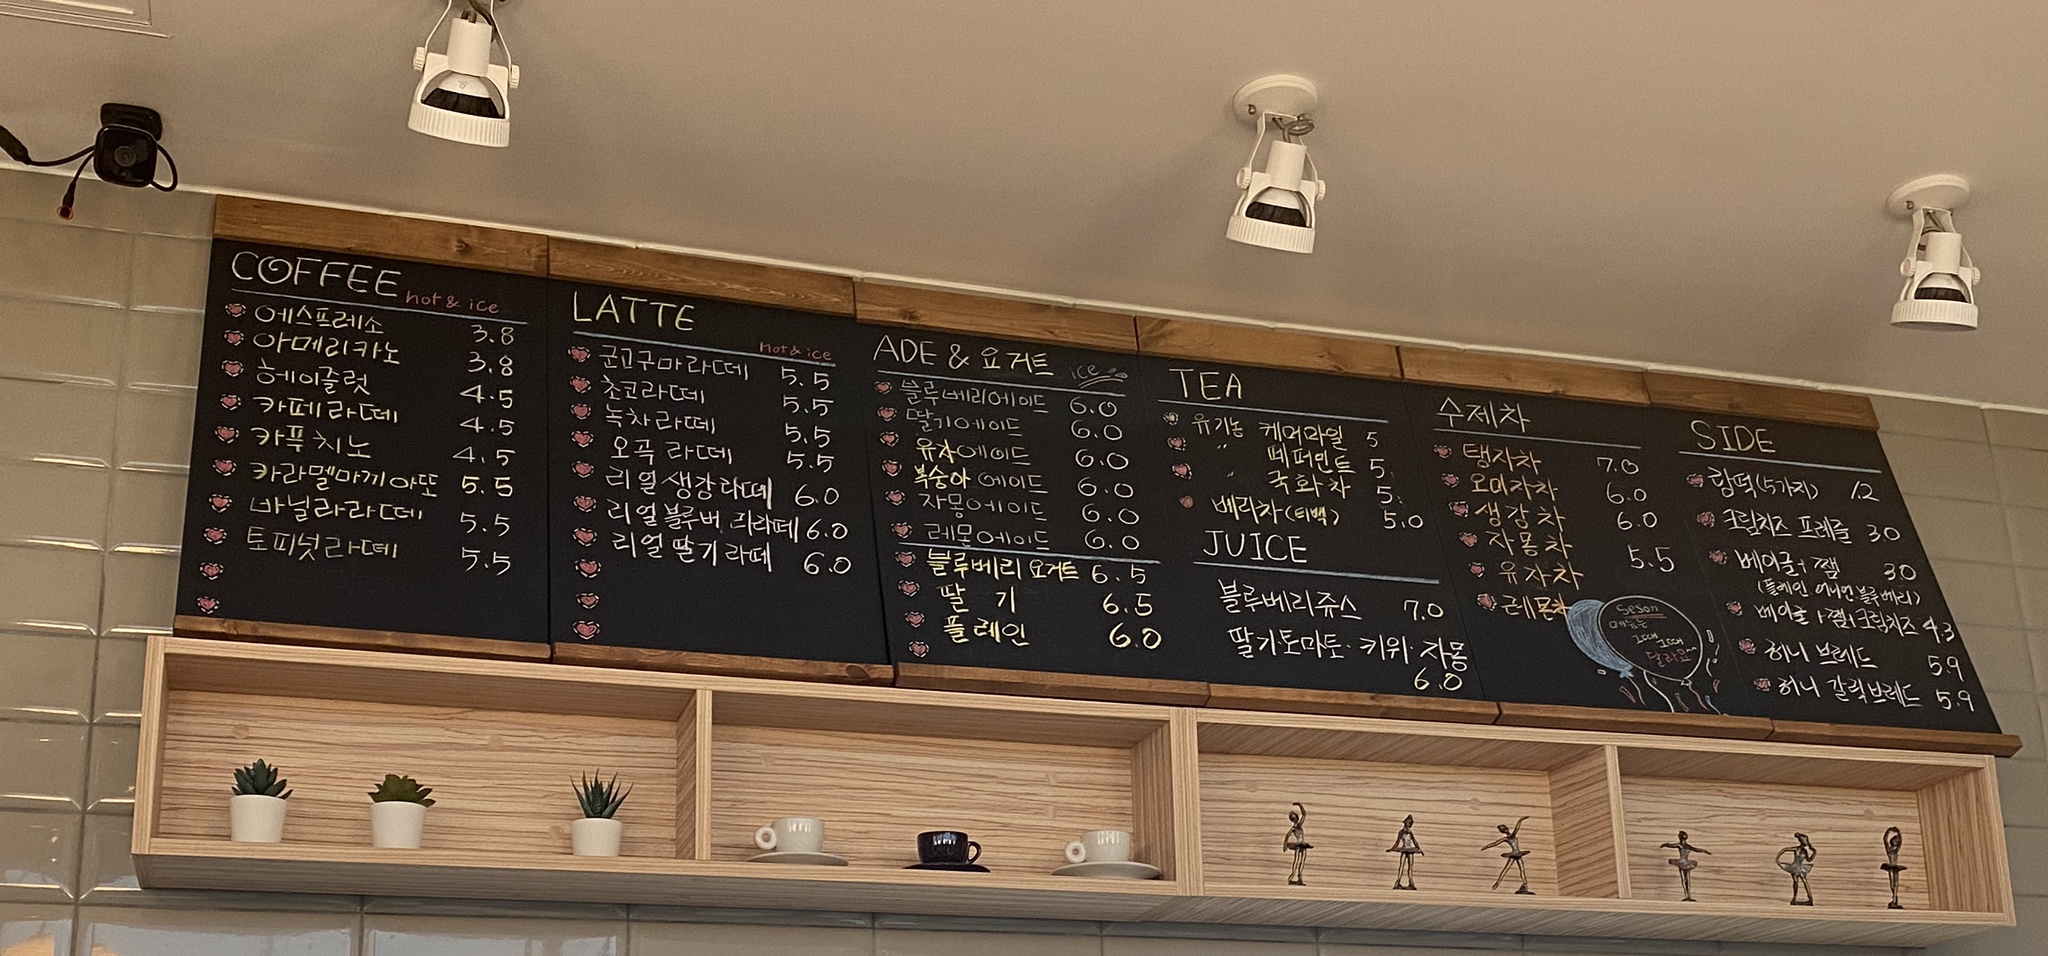 COFFEE hot & ice
에스프레소 3.8
아메리카노 3.8
헤이즐럿 4.5
카페라떼 4.5
카푸치노 4.5
카라멜마끼아또 5.5
바닐라라떼 5.5
토피넛라떼 5.5
LATTE Hot & ice
군고구마라떼 5.5
초코라떼 5.5
녹차라떼 5.5
오곡라떼 5.5
리얼생강라떼 6.0
리얼블루베리라떼 6.0
리얼딸기라떼 6.0
ADE & 요거트 ice
블루베리에이드 6.0
딸기에이드 6.0
유자에이드 6.0
복숭아에이드 6.0
자몽에이드 6.0
레몬에이드 6.0
블루베리 요거트 6.5
딸 기 6.5
플레인 6.0
TEA
유기농 케머마일 5
" 페퍼민트 5.
" 국화차 5.
보리차(티백) 5.0
JUICE
블루베리쥬스 7.0
딸기·토마토·키위·자몽
6.0
수제차
탱자차 7.0
오미자차 6.0
생강차 6.0
자몽차 5.5
유자차
레몬차
Seson
메뉴는
그때 그때
달라요~
SIDE
(5가지) 12
크림치즈 프레즐 3.0
베이글+잼 3.0
(플레인 어니언 블루베리)
베이글+잼+크림치즈 4.3
허니 브레드 5.9
허니 갈릭브레드 5.9